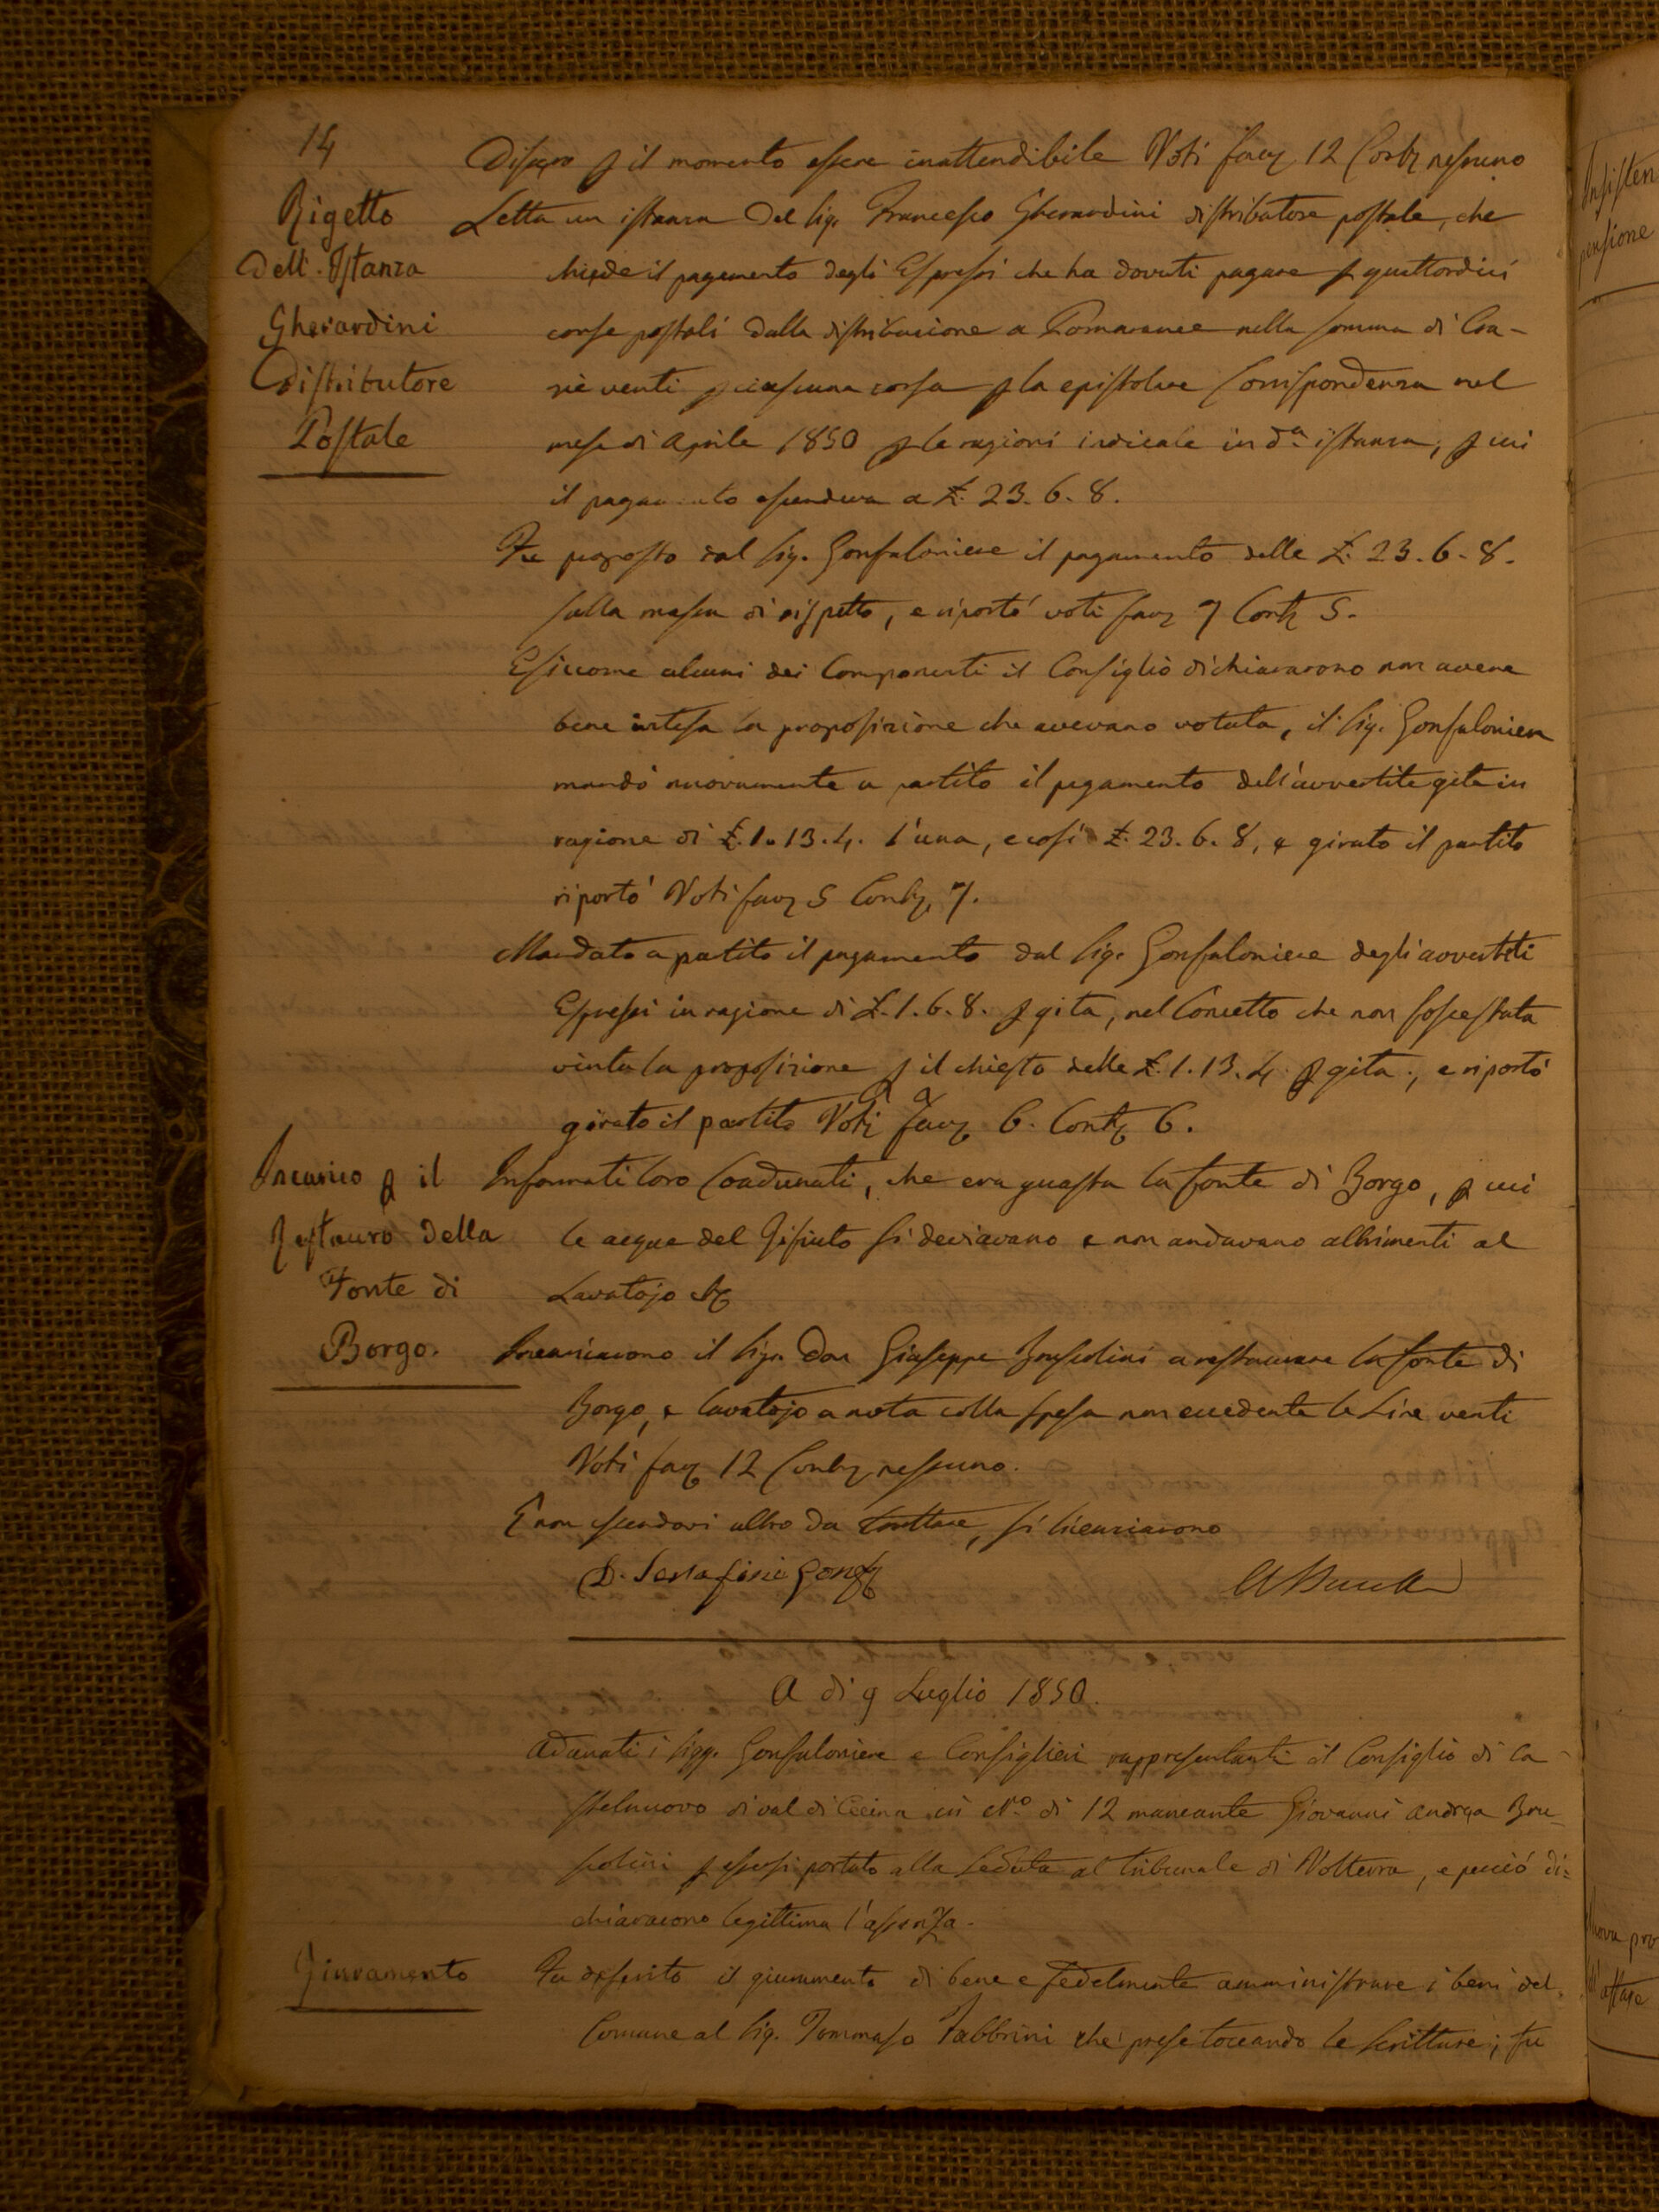 14
Rigetto
dell'Istanza
Gherardini
Distributore
Postale
Dissero p il momento essere inattendibile Voti favz 12 Contz nessuno
Letta un istanza del Sig. Francesco Gherardini distributore postale, che
chiede il pagamento degli Espressi che ha dovuti pagare p quattordici
corse postali dalla distribuzione a Pomarance nella somma di Cra-
zie venti p ciascuna corsa p la epistolare Corrispondenza nel
mese di Aprile 1850 p le ragioni indicate in da. istanza, p cui
il pagamento ascendeva a £. 23. 6. 8.
Fu proposto dal Sig. Gonfaloniere il pagamento delle £. 23. 6. 8.
sulla massa di rispetto, e riportò voti favz 7 Contz 5.
E siccome alcuni dei Componenti il Consiglio dichiararono non avere
bene intesa la proposizione che avevano votata, il Sig. Gonfaloniere
mandò nuovamente a partito il pagamento dell'avvertite gite in
ragione di £. 1. 13. 4. l'una, e così £. 23. 6. 8, e girato il partito
riportò Voti favz 5 Contz 7.
Mandato a partito il pagamento dal Sig. Gonfaloniere degli avvertiti
Espressi in ragione di £. 1. 6. 8. p gita, nel Concetto che non fosse stata
vinta la proposizione p il chiesto delle £. 1. 13. 4 p gita, e riportò
girato il partito Voti favz 6. Contz 6.
Incarico p il
restauro della
Fonte di
Borgo.
Informati loro Coadunati, che era guasta la fonte di Borgo, p cui
le acque del rifiuto si deviavano e non andavano altrimenti al
Lavatojo
Incaricarono il Sigr. Don Giuseppe Bruscolini a restaurare la fonte di
Borgo, e lavatojo a nota colla spesa non eccedente le Lire venti
Voti favz 12 Contz nessuno.
E non essendovi altro da trattare, si licenziarono
D. Serafini Gonfz
A di 9 Luglio 1850.
Adunati i Sigg. Gonfaloniere e Consiglieri rappresentanti il Consiglio di Ca-
stelnuovo di val di Cecina in No. di 12 mancante Giovanni Andrea Bru-
scolini p essersi portato alla Seduta al Tribunale di Volterra, e perciò di=
chiararono legittima l'assenza.
Giuramento
Fu deferito il giuramento di bene e fedelmente amministrare i beni del
Comune al Sig. Tommaso Fabbrini che prese toccando le Scritture; fu